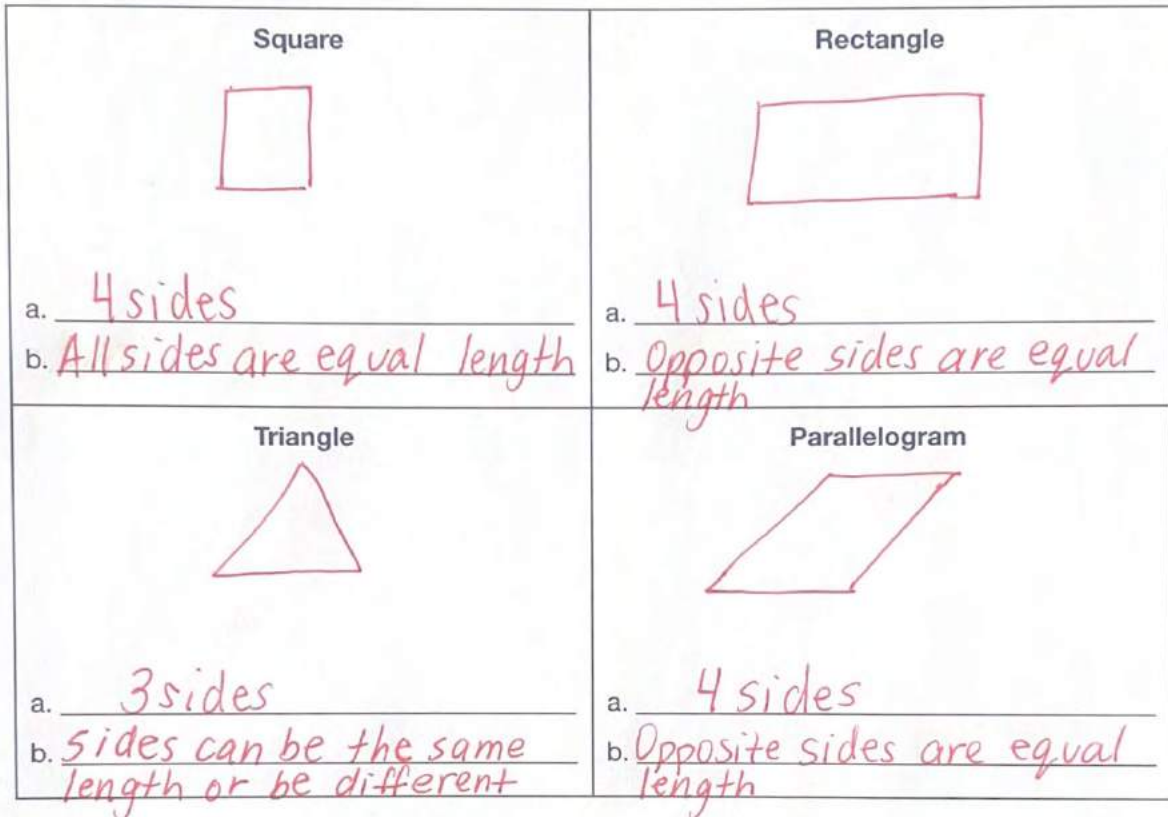 Square
a. 4 sides
b. All sides are equal length
Rectangle
a. 4 sides
b. Opposite sides are equal
length
Triangle
a. 3 sides
b. sides can be the same
length or be different
Parallelogram
a. 4 sides
b. Opposite sides are equal
length